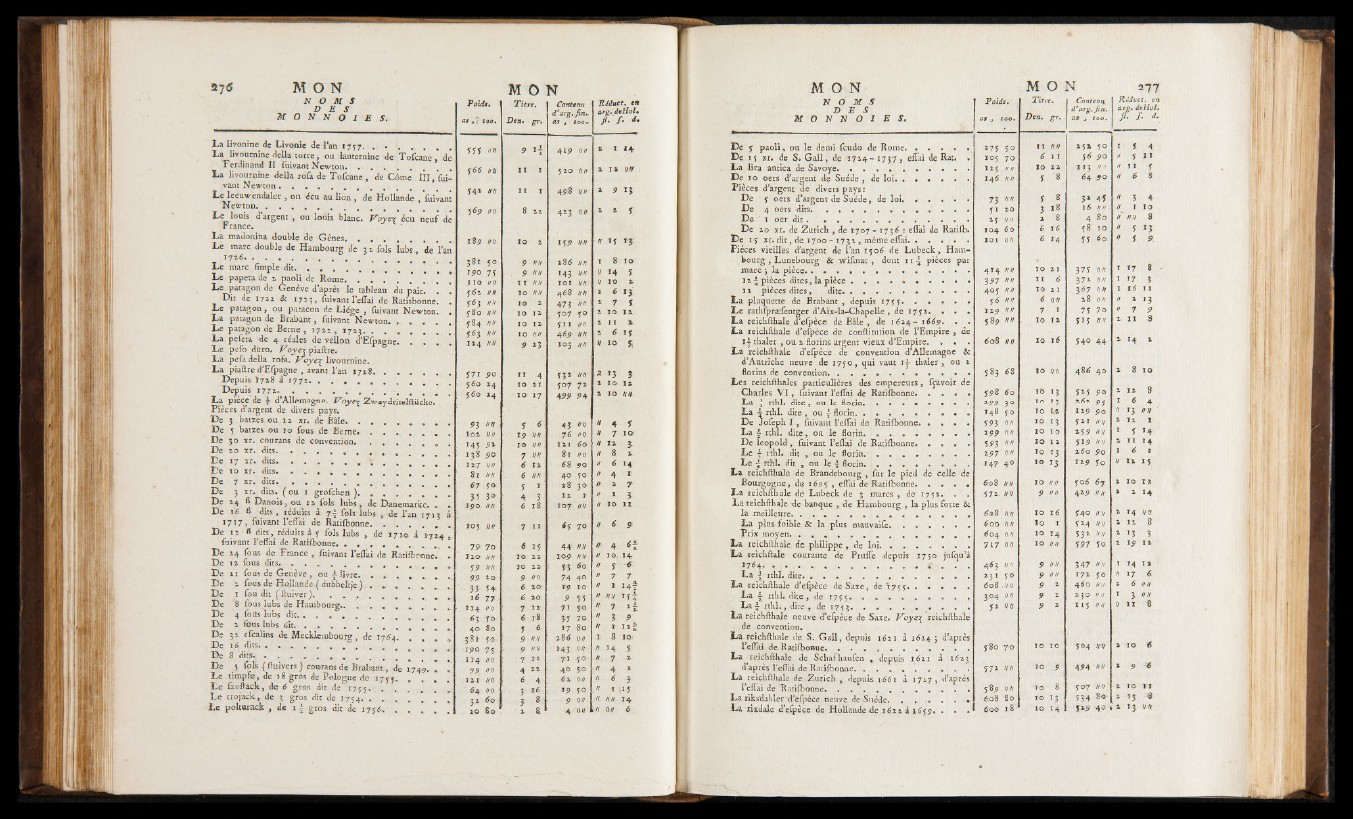 276 MON MON
NOMS DES MONNOIES. Poids. Titre. Contenu d'arg. fin. Réduct. en arg. de Hol.
as, 100. Den. gr. as, 100. fl. ſ. d.
La livonine de Livonie de l'an 1757. 555 〃〃 9 1½ 419 〃〃 2 1 14
La livournine della torre, ou lanternine de Toſcane, de
Ferdinand II ſuivant Newton. 566 〃〃 11 1 520 〃〃 2 12 〃〃
La livournine della roſa de Toſcane, de Côme III, ſui-
vant Newton. 542 〃〃 11 1 498 〃〃 2 9 13
Le leeuwendaler, ou écu au lion, de Hollande, ſuivant
Newton. 569 〃〃 8 22 423 〃〃 2 2 5
Le louis d'argent, ou louis blanc. Voyez écu neuf de
France.
La madonina double de Gênes. 189 〃〃 10 2 159 〃〃 〃 15 13
Le marc double de Hambourg de 32 ſols lubs, de l'an
1726. 381 50 9 〃〃 286 〃〃 1 8 10
Le marc ſimple dit. 190 75 9 〃〃 143 〃〃 〃 14 5
Le papeta de 2 paoli de Rome. 110 〃〃 11 〃〃 101 〃〃 〃 10 2
Le patagon de Genève d'après le tableau du paic. 562 〃〃 10 〃〃 468 〃〃 2 6 13
Dit de 1722 & 1723, ſuivant l'eſſai de Ratisbonne. 563 〃〃 10 2 473 〃〃 2 7 5
Le patagon, ou patacon de Liége, ſuivant Newton. 580 〃〃 10 12 507 50 2 10 12
La patagon de Brabant, ſuivant Newton. 584 〃〃 10 12 511 〃〃 2 11 2
Le patagon de Berne, 1722, 1723. 563 〃〃 10 〃〃 469 〃〃 2 6 15
La peſeta de 4 réales de vellon d'Eſpagne. 124 〃〃 9 23 103 〃〃 〃 10 5
Le peſo duro. Voyez piaſtre.
La peſa della roſa. Voyez livournine.
La piaſtre d'Eſpagne, avant l'an 1728. 571 90 11 4 532 〃〃 2 13 3
Depuis 1728 à 1772. 560 24 10 21 507 72 2 10 12
Depuis 1772. 560 24 10 17 499 94 2 10 〃〃
La pièce de ⅔ d'Allemagne. Voyez Zweydritelſtücke.
Pièces d'argent de divers pays.
De 3 batzes ou 12 xr. de Bâle. 93 〃〃 5 6 43 〃〃 〃 4 5
De 5 batzes ou 10 ſous de Berne. 102 〃〃 19 〃〃 76 〃〃 〃 7 10
De 30 xr. courans de convention. 145 92 10 〃〃 121 60 〃 12 3
De 20 xr. dits. 138 90 7 〃〃 81 〃〃 〃 8 2
De 17 xr. dits. 127 〃〃 6 12 68 90 〃 6 14
De 10 xr. dits. 81 〃〃 6 〃〃 40 50 〃 4 1
De 7 xr. dits. 67 50 5 1 28 30 〃 2 7
De 3 xr. dits. (ou 1 groſchen). 35 30 4 3 12 1 〃 1 3
De 24 ß Danois, ou 12 ſols lubs, de Danemarkc. 190 〃〃 6 18 107 〃〃 〃 10 11
De 16 ß dits, réduits à 7½ ſols lubs, de l'an 1713 à
1717, ſuivant l'eſſai de Ratiſbonne. 105 〃〃 7 11 65 70 〃 6 9
De 12 ß dits, réduits à 5 ſols lubs, de 1710 à 1724,
ſuivant l'eſſai de Ratiſbonne. 79 70 6 15 44 〃〃 〃 4 6½
De 24 ſous de France, ſuivant l'eſſai de Ratiſbonne. 120 〃〃 10 22 109 〃〃 〃 10 14
De 12 ſous dits. 59 〃〃 10 22 53 60 〃 5 6
De 21 ſous de Genève, ou ½ livre. 99 20 9 〃〃 74 40 〃 7 7
De 2 ſous de Hollande (dubbeltje). 33 54 6 20 19 10 〃 1 14½
De 1 ſou dit (ſtuiver). 16 77 6 20 9 55 〃 〃〃 15½
De 8 ſous lubs de Hambourg. 114 〃〃 7 12 71 50 〃 7 2½
De 4 ſous lubs dit. 63 50 6 18 35 70 〃 3 9
De 2 ſous lubs dit. 40 80 5 6 17 80 〃 1 12½
De 32 eſcalins de Mecklembourg, de 1764. 381 50 9 〃〃 286 〃〃 1 8 10
De 16 dits. 190 75 9 〃〃 143 〃〃 〃 14 5
De 8 dits. 114 〃〃 7 12 71 50 〃 7 2
De 5 ſols (ſtuivers) courans de Brabant, de 1749. 99 〃〃 4 22 40 50 〃 4 2
Le timpfe, de 18 gros de Pologne de 1755. 121 〃〃 6 4 62 〃〃 〃 6 3
Le ſzoſtack, de 6 gros dit de 1755. 64 〃〃 3 16 19 50 〃 1 15
Le trojack, de 3 gros dit de 1754. 32 60 3 8 9 〃〃 〃 〃〃 14
Le polturack, de 1½ gros dit de 1756. 20 80 2 8 4 〃〃 〃 〃〃 6
MON MON 277
NOMS DES MONNOIES. Poids. Titre. Contenu d'arg. fin. Réduct. en arg. de Hol.
as, 100. Den. gr. as, 100. fl. ſ. d.
De 5 paoli, ou le demi ſcudo de Rome. 275 50 11 〃〃 252 50 1 5 4
De 15 xr. de S. Gall, de 1724-1737, eſſai de Rat. 105 70 6 11 56 90 〃 5 11
La lira antica de Savoye. 125 〃〃 10 22 113 〃〃 〃 11 5
De 10 oers d'argent de Suéde, de loi. 146 〃〃 5 8 64 90 〃 6 8
Pièces d'argent de divers pays:
De 5 oers d'argent de Suéde, de loi. 73 〃〃 5 8 32 45 〃 3 4
De 4 oers dits. 51 20 3 18 16 〃〃 〃 1 10
De 1 oer dit. 25 〃〃 2 8 4 80 〃 〃〃 8
De 20 xr. de Zurich, de 1707-1736: eſſai de Ratiſb. 104 60 6 16 58 10 〃 5 13
De 15 xr. dit, de 1700-1732, même eſſai. 101 〃〃 6 14 55 60 〃 5 9
Pièces vieilles d'argent de l'an 1506 de Lubeck, Ham-
bourg, Lunebourg & wiſmar, dont 11¾ pièces par
marc; la pièce. 414 〃〃 10 21 375 〃〃 1 17 8
12¼ pièces dites, la pièce. 397 〃〃 11 6 372 〃〃 1 17 3
12 pièces dites, dite. 405 〃〃 10 21 367 〃〃 1 16 11
La plaquette de Brabant, depuis 1755. 56 〃〃 6 〃〃 28 〃〃 〃 2 13
Le rathſpræſentger d'Aix-la-Chapelle, de 1752. 129 〃〃 7 1 75 70 〃 7 9
La reichſthale d'eſpèce de Bâle, de 1624-1669. 589 〃〃 10 12 515 〃〃 2 11 8
La reichſthale d'eſpece de conſtitution de l'Empire, de
1½ thaler, ou 2 florins argent vieux d'Empire. 608 〃〃 10 16 540 44 2 14 2
La reichſthale d'eſpece de convention d'Allemagne &
d'Autriche neuve de 1750, qui vaut 1½ thaler, ou 2
florins de convention. 583 68 10 〃〃 486 40 2 8 10
Les reichſthales particulières des empereurs, ſçavoir de
Charles VI, ſuivant l'eſſai de Ratiſbonne. 598 60 10 13 525 90 2 12 8
La ½ rthl. dite, ou le florin. 299 30 10 13 262 95 1 6 4
La ¼ rthl. dite, ou ½ florin. 148 50 10 12 129 90 〃 13 〃〃
De Joſeph I, ſuivant l'eſſai de Ratiſbonne. 593 〃〃 10 13 521 〃〃 2 12 1
La ½ rthl. dite, ou le florin. 299 〃〃 10 10 259 〃〃 1 5 14
De léopold, ſuivant l'eſſai de Ratiſbonne. 593 〃〃 10 12 519 〃〃 2 11 14
Le ½ rthl. dit, ou le florin. 297 〃〃 10 13 260 90 1 6 1
Le ¼ rthl. dit, ou le ½ florin. 147 40 10 13 129 50 〃 12 15
La reichſthale de Brandebourg, ſur le pied de celle de
Bourgogne, de 1695, eſſai de Ratiſbonne. 608 〃〃 10 〃〃 506 67 2 10 12
La reichſthale de Lubeck de 3 marcs, de 1752. 572 〃〃 9 〃〃 429 〃〃 2 2 14
La reichſthale de banque, de Hambourg, la plus forte &
la meilleure. 608 〃〃 10 16 540 〃〃 2 14 〃〃
La plus foible & la plus mauvaiſe. 600 〃〃 10 1 524 〃〃 2 12 8
Prix moyen. 604 〃〃 10 14 532 〃〃 2 13 3
La reichſthale de philippe, de loi. 717 〃〃 10 〃〃 597 50 2 19 12
La reichſtale courante de Pruſſe depuis 1750 juſqu'à
1764. 463 〃〃 9 〃〃 347 〃〃 1 14 12
La ½ rthl. dite. 231 50 9 〃〃 172 50 〃 17 6
La reichſthale d'eſpèce de Saxe, de 1755. 608 〃〃 9 2 460 〃〃 2 6 〃〃
La ½ rthl. dite, de 1755. 304 〃〃 9 2 230 〃〃 1 3 〃〃
La ¼ rthl., dite, de 1753. 52 〃〃 9 2 115 〃〃 〃 11 8
La reichſthale neuve d'eſpèce de Saxe. Voyez reichſthale
de convention.
La reichſthale de S. Gall, depuis 1621 à 1624; d'après
l'eſſai de Ratiſbonne. 580 70 10 10 504 〃〃 2 10 6
La reichſthale de Schafhauſen, depuis 1621 à 1623
d'après l'eſſai de Ratiſbonne. 572 〃〃 10 9 494 〃〃 2 9 6
La reichſthale de Zurich, depuis 1661 à 1727, d'après
l'eſſai de Ratiſbonne. 589 〃〃 10 8 507 〃〃 2 10 11
La riksdahler d'eſpèce neuve de Suéde. 608 80 10 13 534 80 2 13 8
La rixdale d'eſpèce de Hollande de 1622 à 1659. 600 18 10 14 529 40 2 13 〃〃